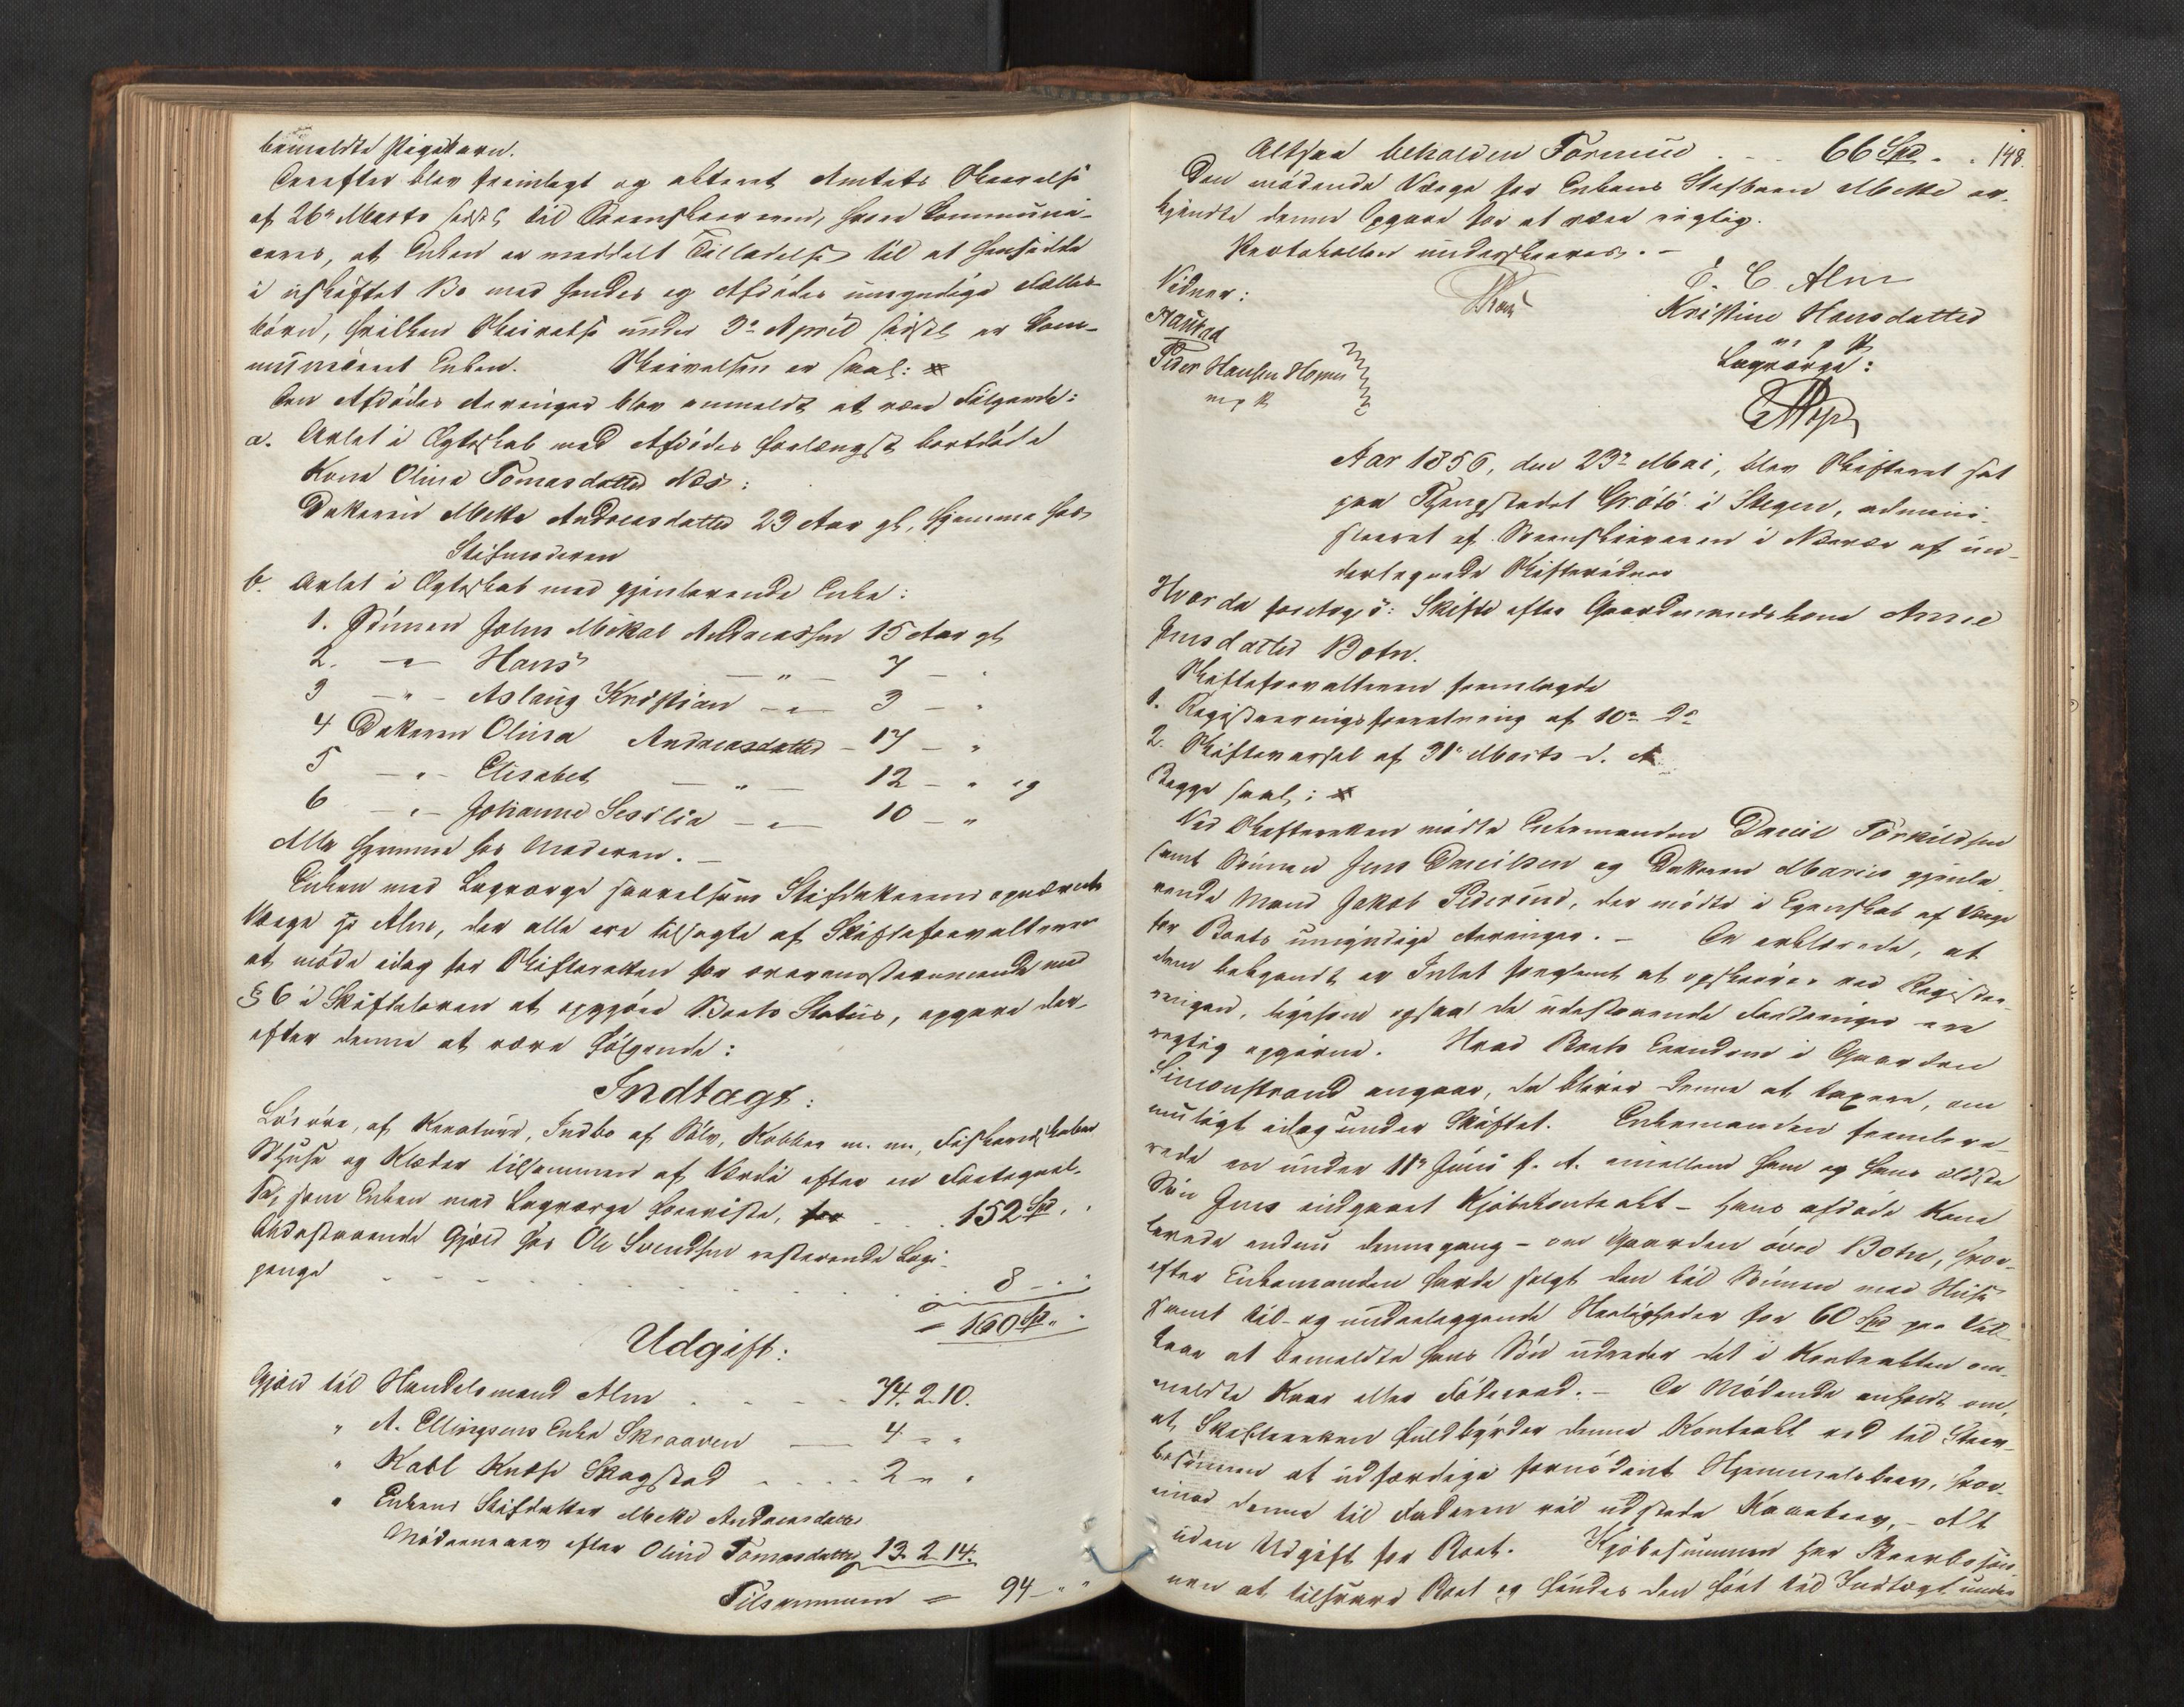 bemeldte Pigebarn.
Derefter blev fremlagt og oplæst Amtets Skrivelse
af 26de Marts sidstl. til Sorenskriveren, hvori Communi-
ceres, at Enken er meddelt Tilladelse til at hensidde
i uskiftet Bo med hendes og Afdødes umyndige Fælles-
børn, hvilken Skrivelse under 3de April sidstl. er Com-
municeret Enken. Skrivelsen er saal:
Den Afdødes Arvinger blev anmeldt at være Følgende:
a. Avlet i Ægteskab med Afdødes forlængst bortdøde
Kone Olina Tomasdatter Næs:
Datteren Mette Andreasdatter 23 Aar gl., hjemme hos
Stifmoderen
b. Avlet i Ægteskab med gjenlevende Enke:
1. Sönnen John Mikal Andreassen 15 Aar gl
2. -"- Hans -"- 7 - "
3 -"- Aslaug Kristian -"- 3 - "
4 Datteren Olina Andreasdatter - 17 - "
5 -"- Elisabet -"- 12 - " og
6 -"- Johanne Sesilia -"- 10 - "
Alle hjemme hos Moderen.
Enken med Laugværge saavelsom Stifdatterens opnævnte
Værge Hr Alm, der alle ere tilsagte af Skifteforvalteren
at møde idag for Skifteretten for overensstemmende med
§ 6 i Skifteloven at opgjöre Boets Status, opgave der-
efter denne at være følgende:
Indtægt:
Lösöre, af Kreaturer, Indbo af Sölv, Kobber m. m., Fiskeredskaber
Huse og Klæder tilsammen af Værdi efter en Fortegnel-
se, som Enken med Laugværge foreviste, . . . 152 Spd " "
Udestaaende Gjæld hos Ole Svendsen resterende Logi-
penge . . . . 8 - " "
= 160 Spd " "
Udgift:
Gjæld til Handelsmand Alm . . . . 74. 2. 10.
" A. Ellingsens Enke Skraaven — 4 " "
" Karl Knutsen Skagstad . . . . 2 " "
" Enkens Stifdatter Mette Andreasdatter
Mödrenearv efter Olina Tomasdatter 13. 2. 14.
Tilsammen = 94 " "
Altsaa beholden Formue . . . 66 Spd " " 148.
Den mödende Værge for Enkens Stifbarn Mette er-
kjendte denne Opgave for at være rigtig.
Protokollen underskreves. -
Vidner: E. C. Alm
Kristine Hansdatter
m. p. P.
Peder Hansen Laugværge:
m. p. P.
Aar 1856, den 23de Mai, blev Skifteret sat
paa Thingstedet Grötö i Stegen, admini-
streret af Sorenskriveren i Nærvær af un-
dertegnede Skiftevidner
Hvorda foretoges: Skifte efter Gaardmandskone Anne
Jensdatter Botn.
Skifteforvalteren fremlagde
1. Registreringsforretning af 10de ds
2. Skiftevarsel af 31te Marts d. A.
Begge saal:
Ved Skifteretten mødte Enkemanden Daniel Törkildsen
samt Sönnen Jens Danielsen og Datteren Maries gjenle-
vende Mand Jakob Pedersens, der mødte i Egenskab af Værge
for Boets umyndige Arvinger. - De erklærede, at
dem bekjendt er Intet forglemt at opskrives ved Registre-
ringen, ligesom ogsaa de udestaaende Fordringer ere
rigtig opgivne. Hvad Boets Eiendom i Gaarden
Simonstrand angaar, da bliver denne at taxere, om
muligt idag under Skiftet. Enkemanden fremleve-
rede en under 11te Juni f. A. imellem ham og hans ældste
Sön Jens indgaaet Kjöbekontrakt - hans afdöde Kone
levede endnu dennegang - om Gaarden övre Botn, hvor-
efter Enkemanden havde solgt den til Sönnen med Huse
samt til- og underliggende Herligheder for 60 Spd paa Vil-
kaar at bemeldte hans Sön udreder det i Kontrakten om-
meldte Kaar eller Föderaad. - De Mödende anholdt om,
at Skifteretten fuldbyrder denne Kontrakt ved til Stær-
bosönnen at udfærdige fornödent Hjemmelsbrev, hvor-
imod denne til Faderen vil udstede Kaarbrev, - Alt
uden Udgift for Boet. Kjöbesummen har Stærbosön-
nen at tilsvare Boet og findes den fört til Indtægt under